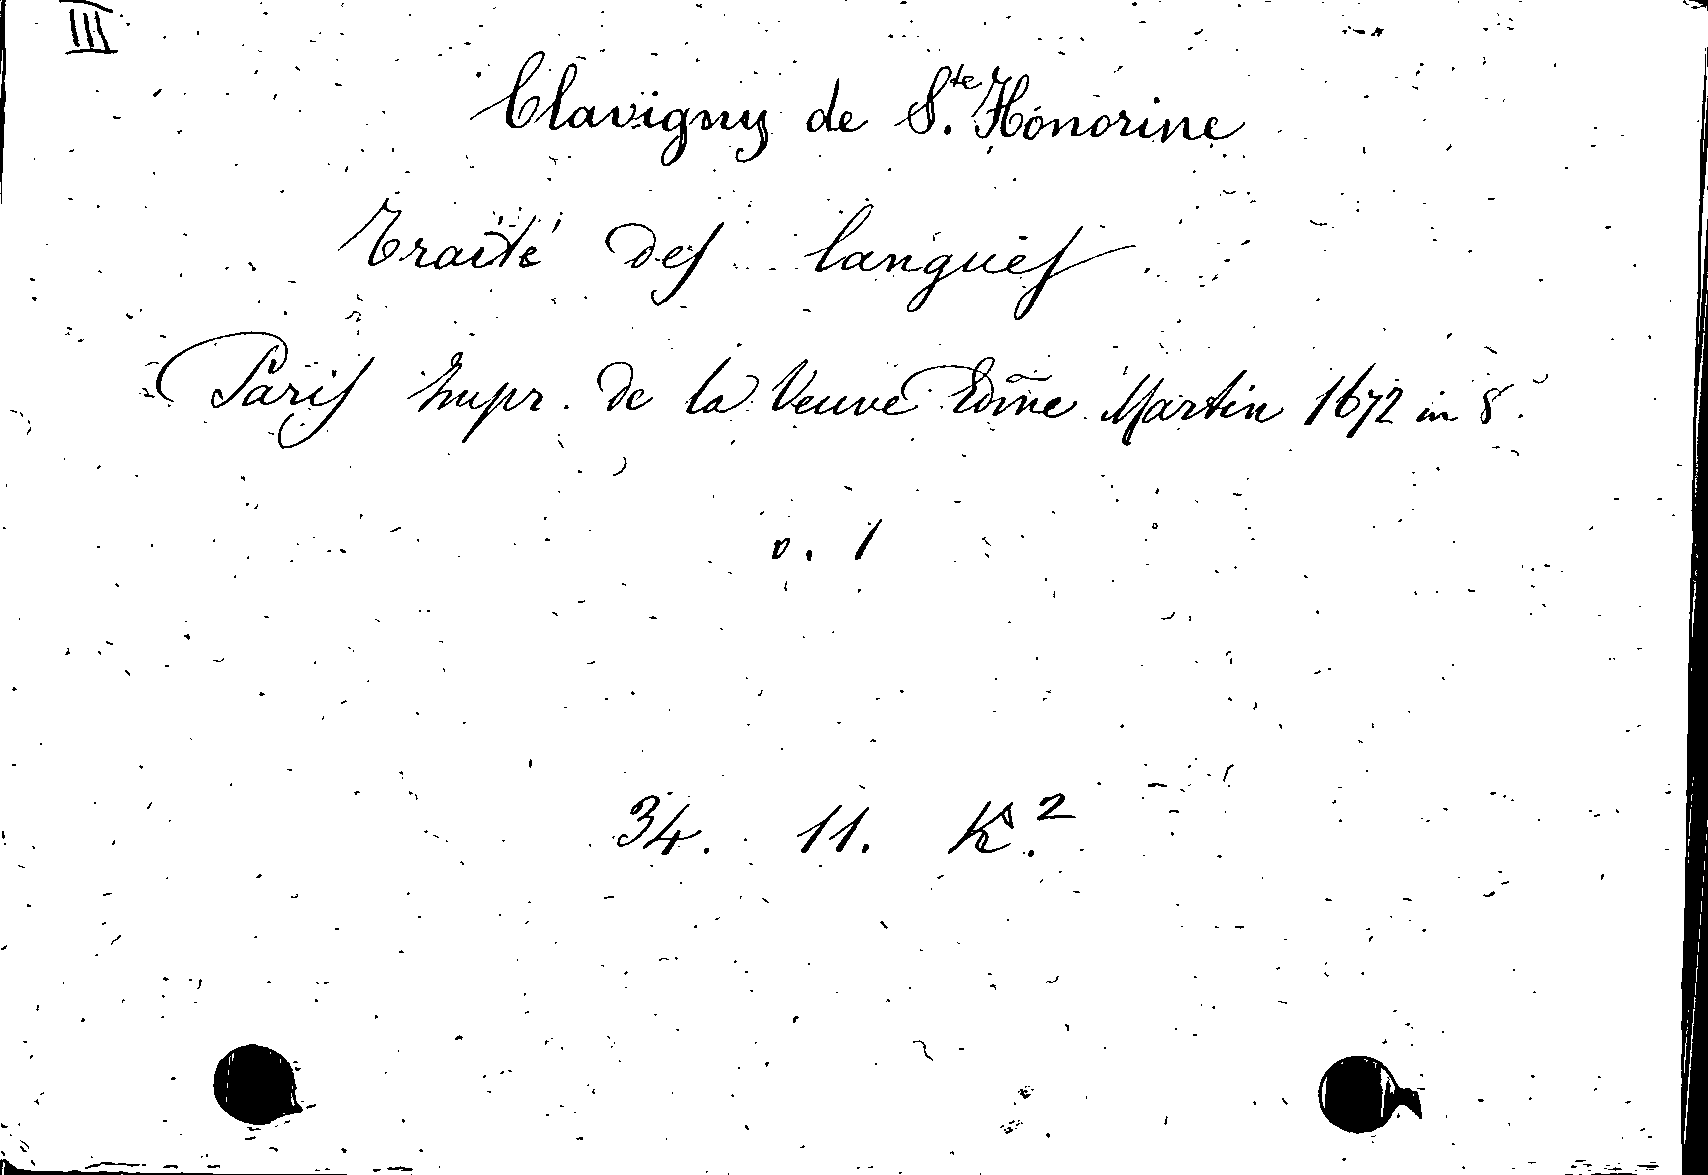 III
Clavigny de S.te Honorine
Traité des langues
Paris Impr. de la Veuve Edme Martin 1672 in 8.
v. 1
34. 11. K.2